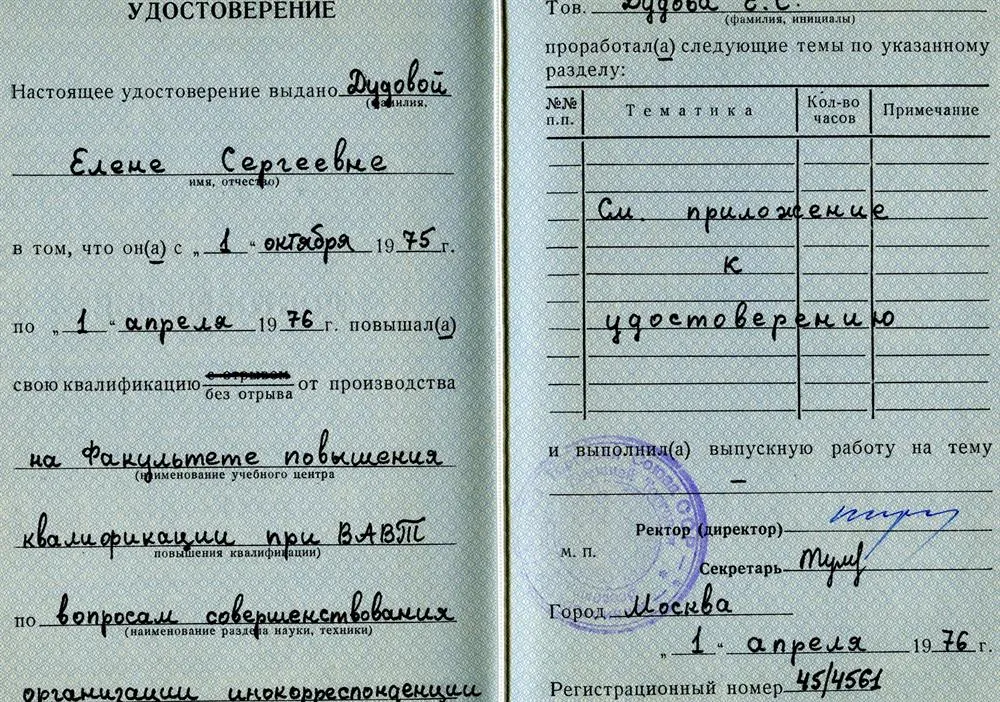 УДОСТОВЕРЕНИЕ
Настоящее удостоверение выдано Дудовой
(фамилия,
Елене Сергеевне
имя, отчество)
в том, что он(а) с „ 1 “ октября 1975 г.
по „ 1 “ апреля 1976 г. повышал(а)
свою квалификацию с отрывом от производства
без отрыва
на Факультете повышения
(наименование учебного центра
квалификации при ВАВТ
повышения квалификации)
по вопросам совершенствования
(наименование раздела науки, техники)
организации инокорреспонденции
Тов. Дудова Е.С.
(фамилия, инициалы)
проработал(а) следующие темы по указанному
разделу:
№№ п.п. Тематика Кол-во часов Примечание
См. приложение
к
удостоверению
и выполнил(а) выпускную работу на тему
—
Ректор (директор)
м. п.
Секретарь
Город Москва
„ 1 “ апреля 1976 г.
Регистрационный номер 45/4561